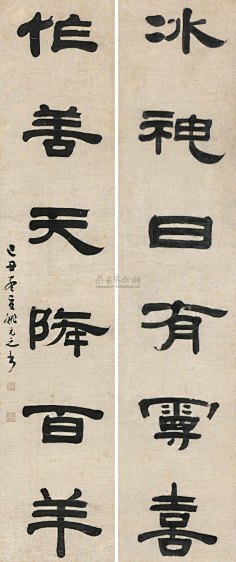 冰神日有喜
作善天降百羊
己丑夏五姚元之書